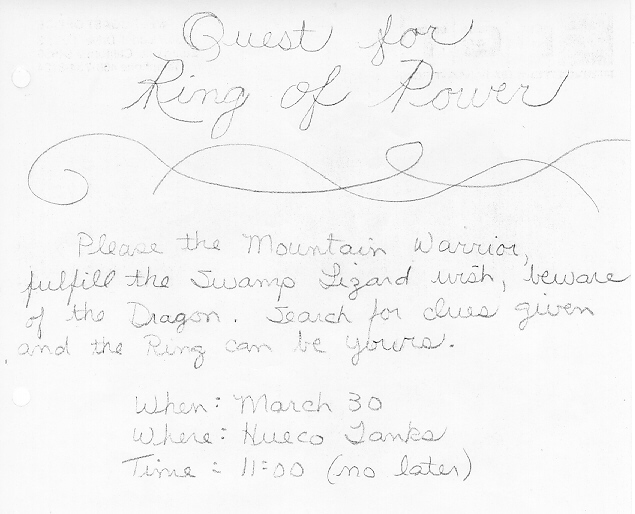 Quest for
Ring of Power
Please the Mountain Warrior,
fulfill the Swamp Lizard wish, beware
of the Dragon. Search for clues given
and the Ring can be yours.
When: March 30
Where: Hueco Tanks
Time: 11:00 (no later)